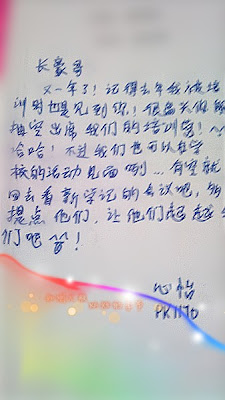 长豪哥
又一年了！记得去年我被培
训时也見到你！很盡
抽空出席我们的培训营！
哈哈！不过我们也可以在学
校的活动见面咧...有空就
回去看新学记的会议吧，
提点他们，让他们起起
们吧！
心怡
PK1170